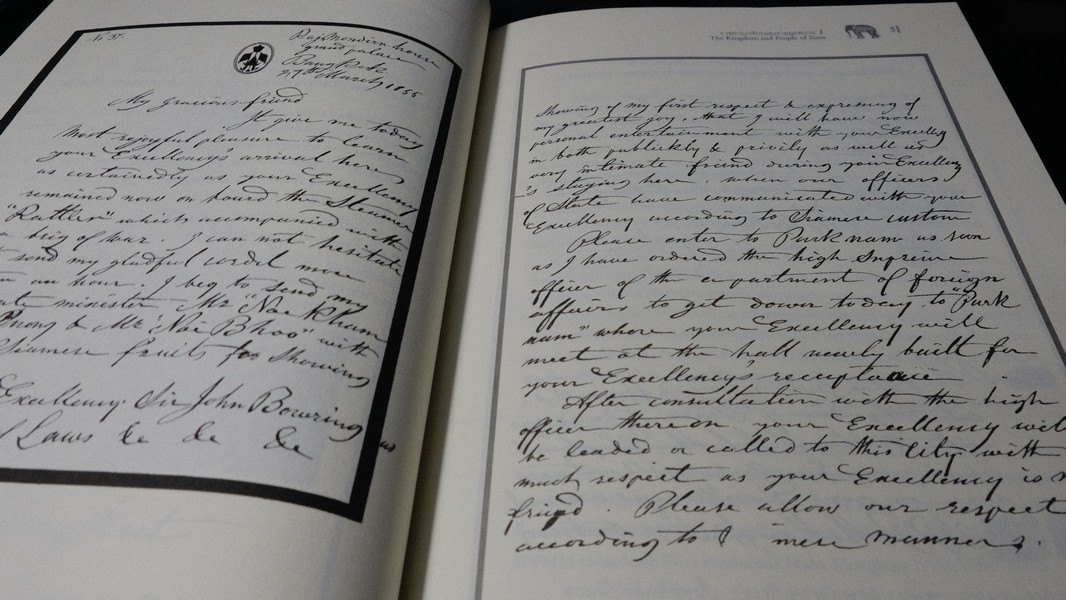 No 37.
Rajmondien house
Grand palace
Bangkok
27th March 1855
My gracious friend
It give me today
most rejoyful pleasure to learn
your Excellency's arrival here
as certainedly as your Excellency
remained now on board the Steamer
"Rattler" which accompanied with
a brig of war. I can not hesitate
send my gladful cordel more
an hour. I beg to send my
ate minister Mr "Nae Kham
Bhoo" with
Siamese fruits for showing
Excellency Sir John Bowring
Laws &c &c &c
The Kingdom and People of Siam
51
showing of my first respect & expressing of
my greatest joy, that I will have now
personal entertainment with your Excellency
in both publickly & privily as well as
very intimate friend during your Excellency
's staying here, when our officers
of State have communicated with your
Excellency according to Siamese custom
Please enter to Park nam as soon
as I have ordered the high Supreme
officer of the department of foreign
affairs to get down today to "Park
nam" where your Excellency will
meet at the hall newly built for
your Excellency's receptance
After consultation with the high
officer there on your Excellency will
be leaded or called to this city with
much respect as your Excellency is
friend. Please allow our respect
according to mese manners.